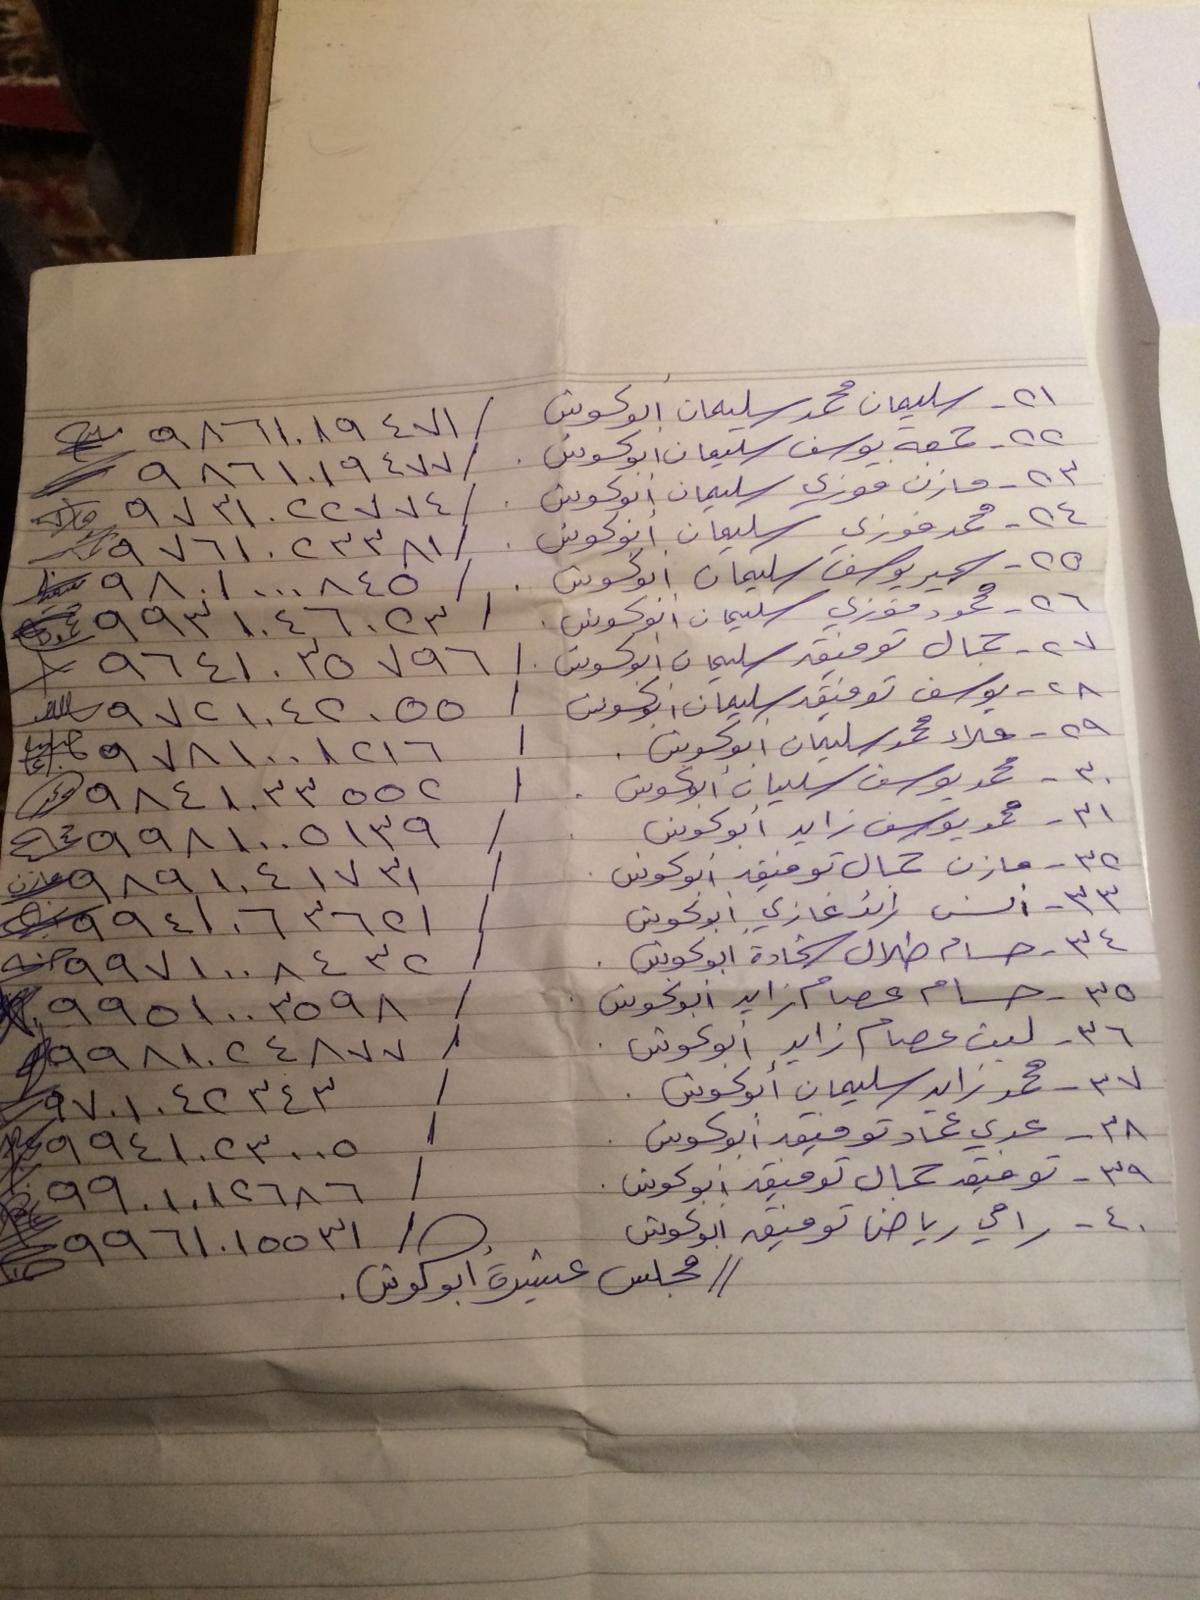 ٢١- سليمان محمد سليمان أبوكوش / ٩٨٦١٠١٩٤٧١
٢٢- جمعه يوسف سليمان ابوكوش . / ٩٨٦١٠١٩٤٧٧
٢٣- مازن فوزي سليمان أبوكوش . / ٩٧٣١٠٢٢٧٧٤
٢٤- محمد فوزي سليمان أبوكوش . / ٩٧٦١٠٢٣٣٨١
٢٥- سمير يوسف سليمان ابوكوش . / ٩٨٠١٠٠٠٨٤٥
٢٦- محمود فوزي سليمان ابوكوش . / ٩٩٣١٠٤٦٠٢٣
٢٧- جمال توفيق سليمان ابوكوش . / ٩٦٤١٠٣٥٧٩٦
٢٨- يوسف توفيق سليمان ابوكوش / ٩٧٢١٠٤٢٠٥٥
٢٩- علاء محمد سليمان ابوكوش . / ٩٧٨١٠٠٨٢١٦
٣٠- محمد يوسف سليمان أبوكوش . / ٩٨٤١٠٣٣٥٥٢
٣١- محمد يوسف زايد أبوكوش . / ٩٩٨١٠٠٥١٣٩
٣٢- مازن جمال توفيق ابوكوش . / ٩٨٩١٠٤١٧٣١ مازن
٣٣- أنس رائد غازي ابوكوش / ٩٩٤١٠٦٣٦٢١
٣٤- حسام طلال شحادة ابوكوش . / ٩٩٧١٠٠٨٤٣٢
٣٥- حسام عصام زايد ابوكوش . / ٩٩٥١٠٠٣٥٩٨
٣٦- ليث عصام زايد أبوكوش . / ٩٩٨١٠٢٤٨٧٧
٣٧- محمد زايد سليمان أبوكوش . / ٩٧٠١٠٤٢٣٤٣
٣٨- عدي عماد توفيق ابوكوش . / ٩٩٤١٠٢٣٠٠٥
٣٩- توفيق جمال توفيق ابوكوش . / ٩٩٠١٠١٢٦٨٦
٤٠- رامي رياض توفيق ابوكوش / ٩٩٦١٠١٥٥٣١
// مجلس عشيرة أبوكوش .